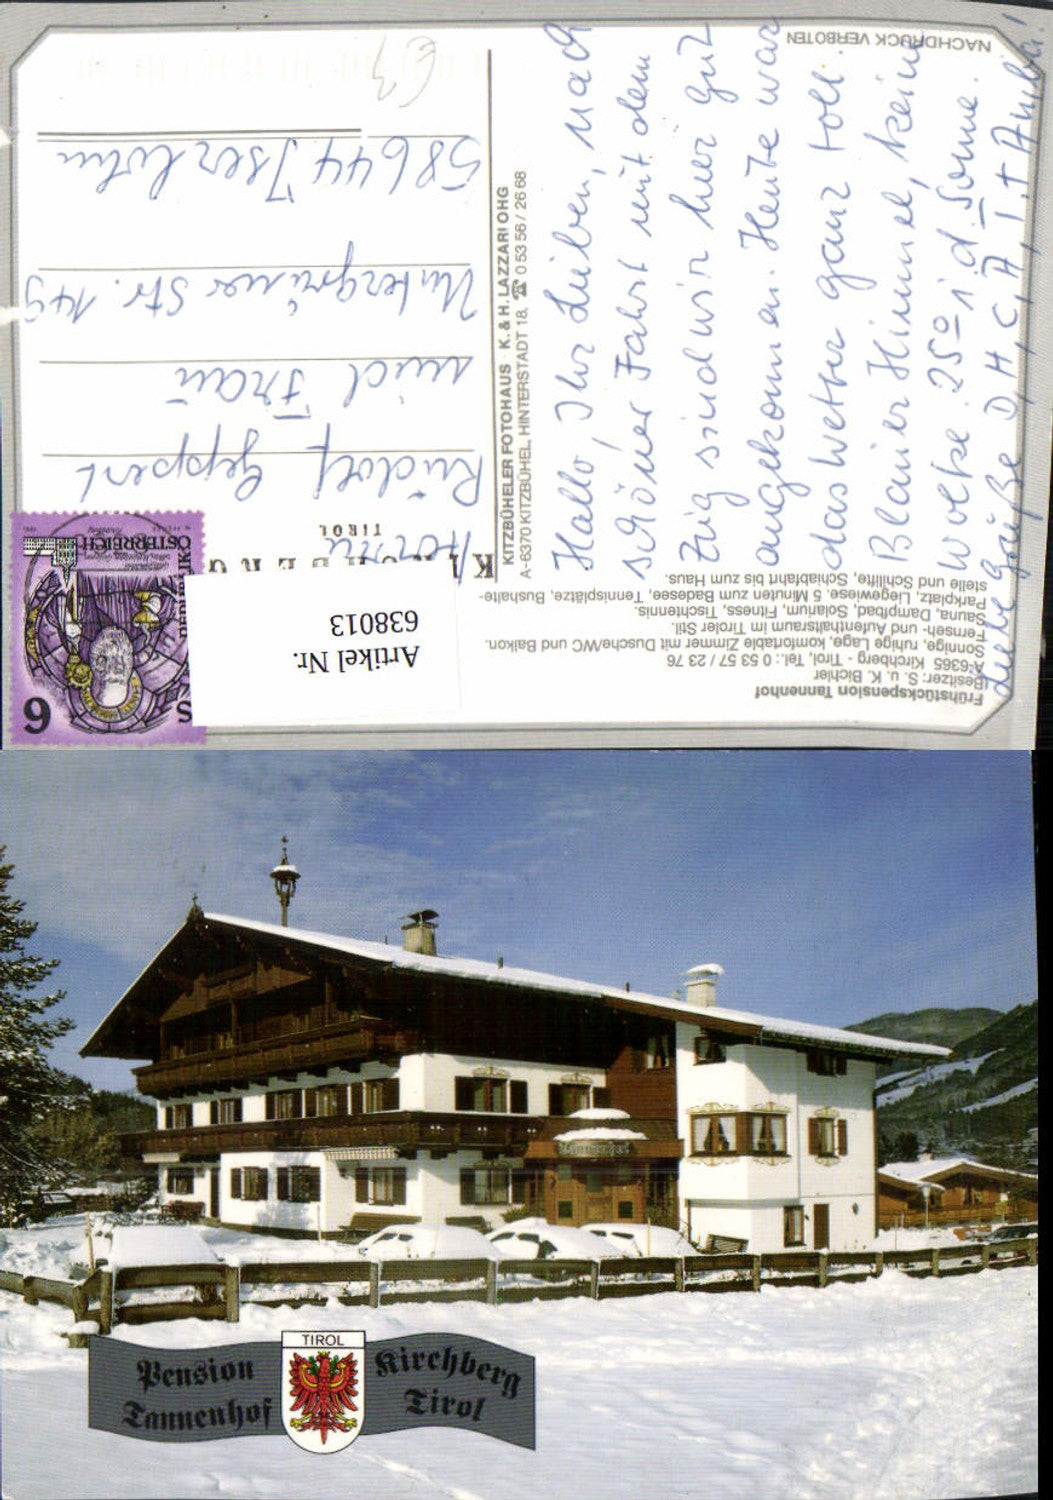 Frühstückspension Tannenhof
Besitzer: S. u. K. Bichler
A-6365 Kirchberg - Tirol, Tel.: 0 53 57 / 23 76
Sonnige, ruhige Lage, komfortable Zimmer mit Dusche/WC und Balkon.
Fernseh- und Aufenthaltsraum im Tiroler Stil.
Sauna, Dampfbad, Solarium, Fitness, Tischtennis.
Parkplatz, Liegewiese. 5 Minuten zum Badesee, Tennisplätze, Bushalte-
stelle und Schilifte, Schiabfahrt bis zum Haus.
Hallo, Ihr Lieben, nach
schöner Fahrt mit dem
Zug sind wir hier gut
angekommen. Heute war
das Wetter ganz toll.
Blauer Himmel, keine
Wolke. 25º i. d. Sonne.
Liebe Grüße D, H, C, A, I. + Anika
KITZBÜHELER FOTOHAUS · K. & H. LAZZARI OHG
A-6370 KITZBÜHEL, HINTERSTADT 18, ☎ 0 53 56 / 26 68
NACHDRUCK VERBOTEN
Artikel Nr.
638013
TIROL
6
REPUBLIK
ÖSTERREICH
Herrn
Rudolf Geppert
und Frau
Untergrüner Str. 149
58644 Iserlohn
€3
Pension
Tannenhof
TIROL
Kirchberg
Tirol